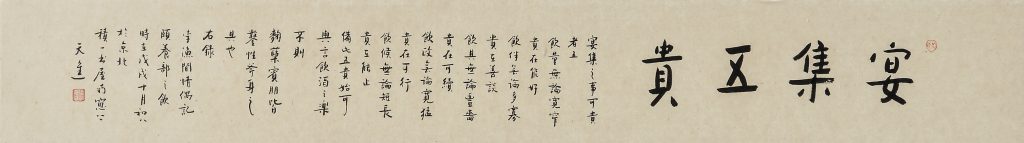 宴集五貴
宴集之事可貴
者五
飲量無論寬窄
貴在能好
飲伴無論多寡
貴在善談
飲具無論豊嗇
貴在可續
飲政無論寬猛
貴在可行
飲候無論短長
貴在能止
備此五貴始可
與言飲酒之樂
不則
麴蘗賓朋皆
鑿性斧身之
具也
右錄
李漁閒情偶記
頤養部之飲
時在戊戌十月初
於京北
積一書屋南窗下
天